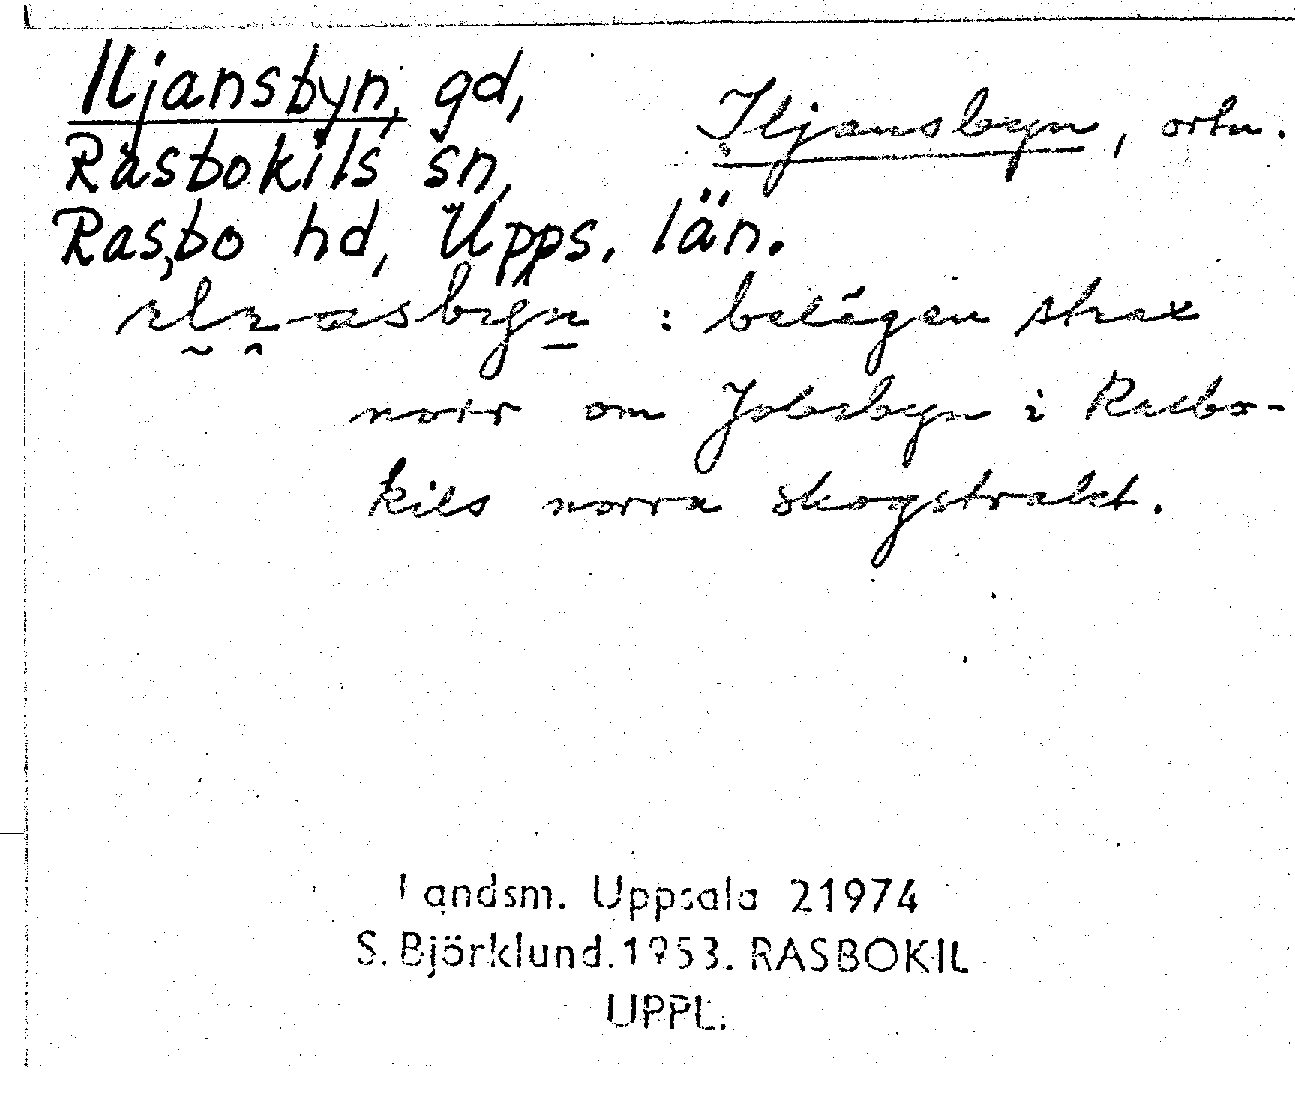 Iljansbyn, gd,
Rasbokils sn,
Rasbo hd, Upps. län.
Iljansbyn, ortn.
: belägen strax
norr om Jobsbyn i Rasbo-
kils norra skogstrakt.
Landsm. Uppsala 21974
S. Björklund. 1953. RASBOKIL
UPPL.